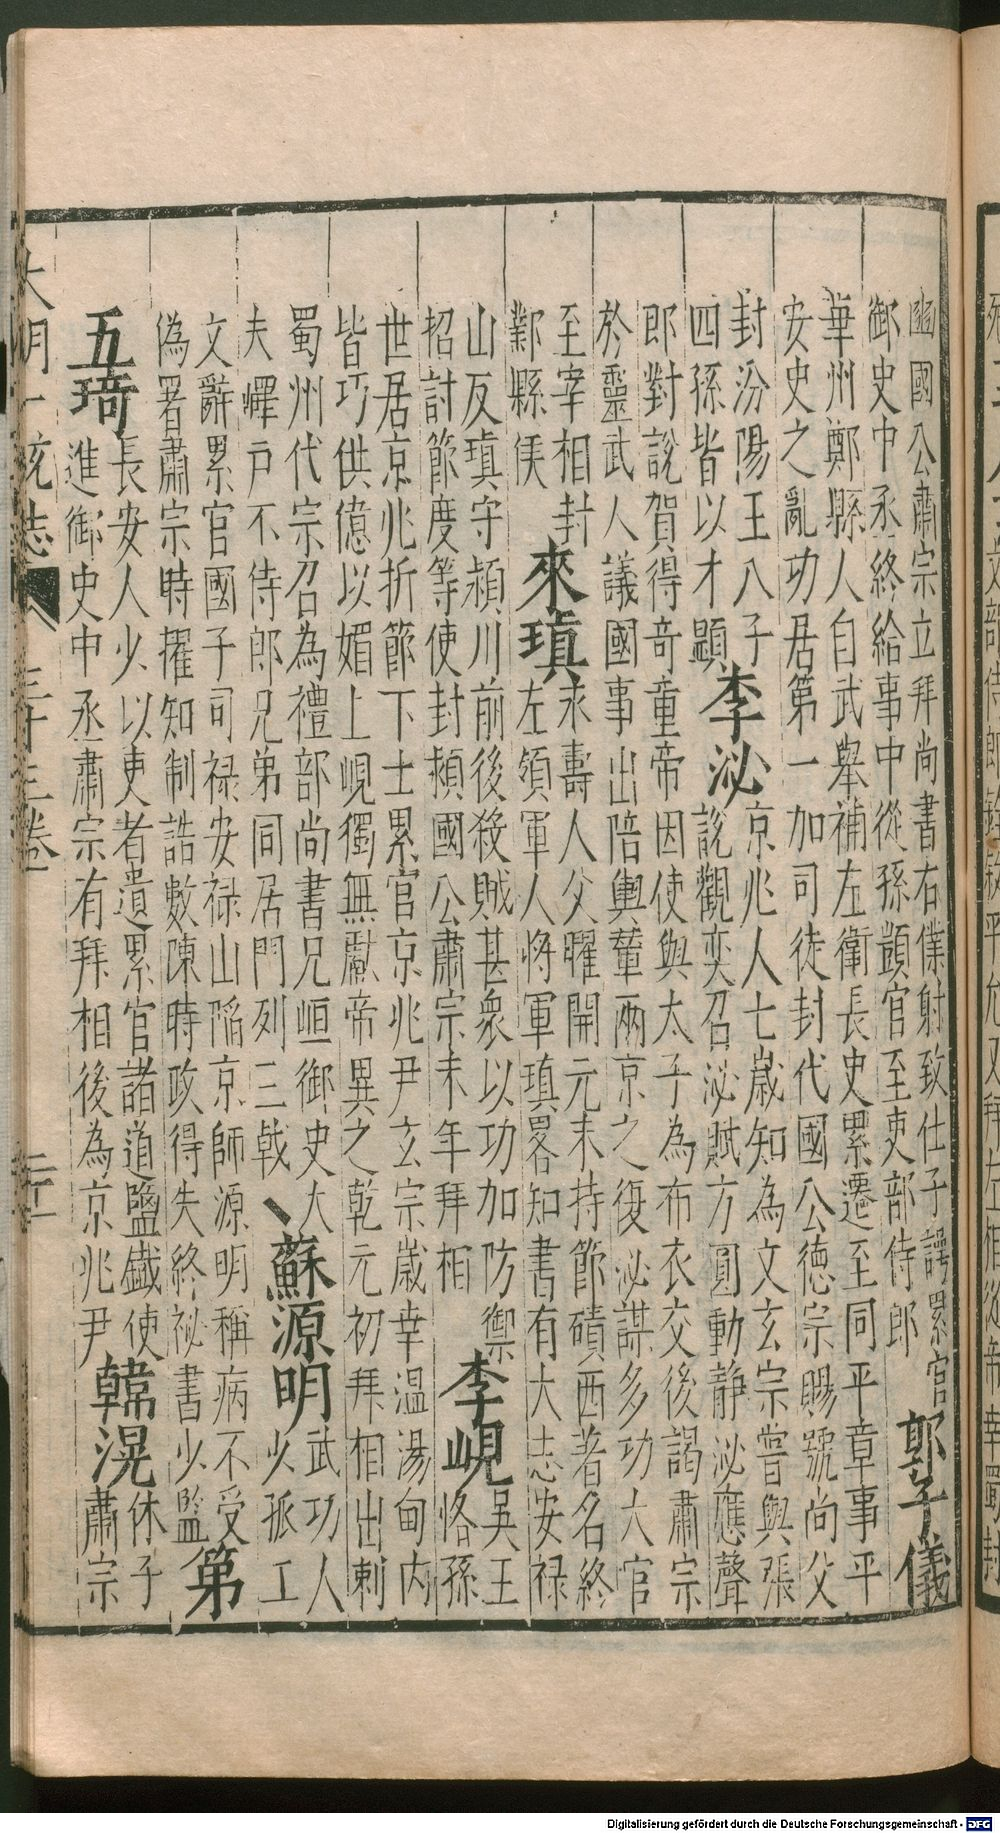 豳國公肅宗立拜尚書右僕射致仕子諤累官
御史中丞終給事中從孫顗官至吏部侍郎
郭子儀
華州鄭縣人自武舉補左衛長史累遷至同平章事平
安史之亂功居第一加司徒封代國公德宗賜號尚父
封汾陽王八子
四孫皆以才顯
李泌
京兆人七歲知為文玄宗嘗與張
說觀奕召泌賦方圓動靜泌應聲
郎對說賀得奇童帝因使與太子為布衣交後謁肅宗
於靈武人議國事出陪輿輦兩京之復泌謀多功大官
至宰相封
鄴縣侯
來瑱
永壽人父曜開元末持節磧西著名終
左領軍人將軍瑱畧知書有大志安禄
山反瑱守潁川前後殺賊甚衆以功加防禦
招討節度等使封潁國公肅宗末年拜相
李峴
吳王
恪孫
世居京兆折節下士累官京兆尹玄宗歲幸温湯甸内
皆巧供億以媚上峴獨無獻帝異之乾元初拜相出刺
蜀州代宗召為禮部尚書兄峘御史大
夫嶧戶不侍郎兄弟同居門列三戟
蘇源明
武功人
少孤工
文辭累官國子司禄安禄山陷京師源明稱病不受
偽署肅宗時擢知制誥數陳時政得失終祕書少監
第
五琦
長安人少以吏者遺累官諸道鹽鐵使
進御史中丞肅宗有拜相後為京兆尹
韓滉
休子
肅宗
大明一統志 三十三卷
Digitalisierung gefördert durch die Deutsche Forschungsgemeinschaft - DFG